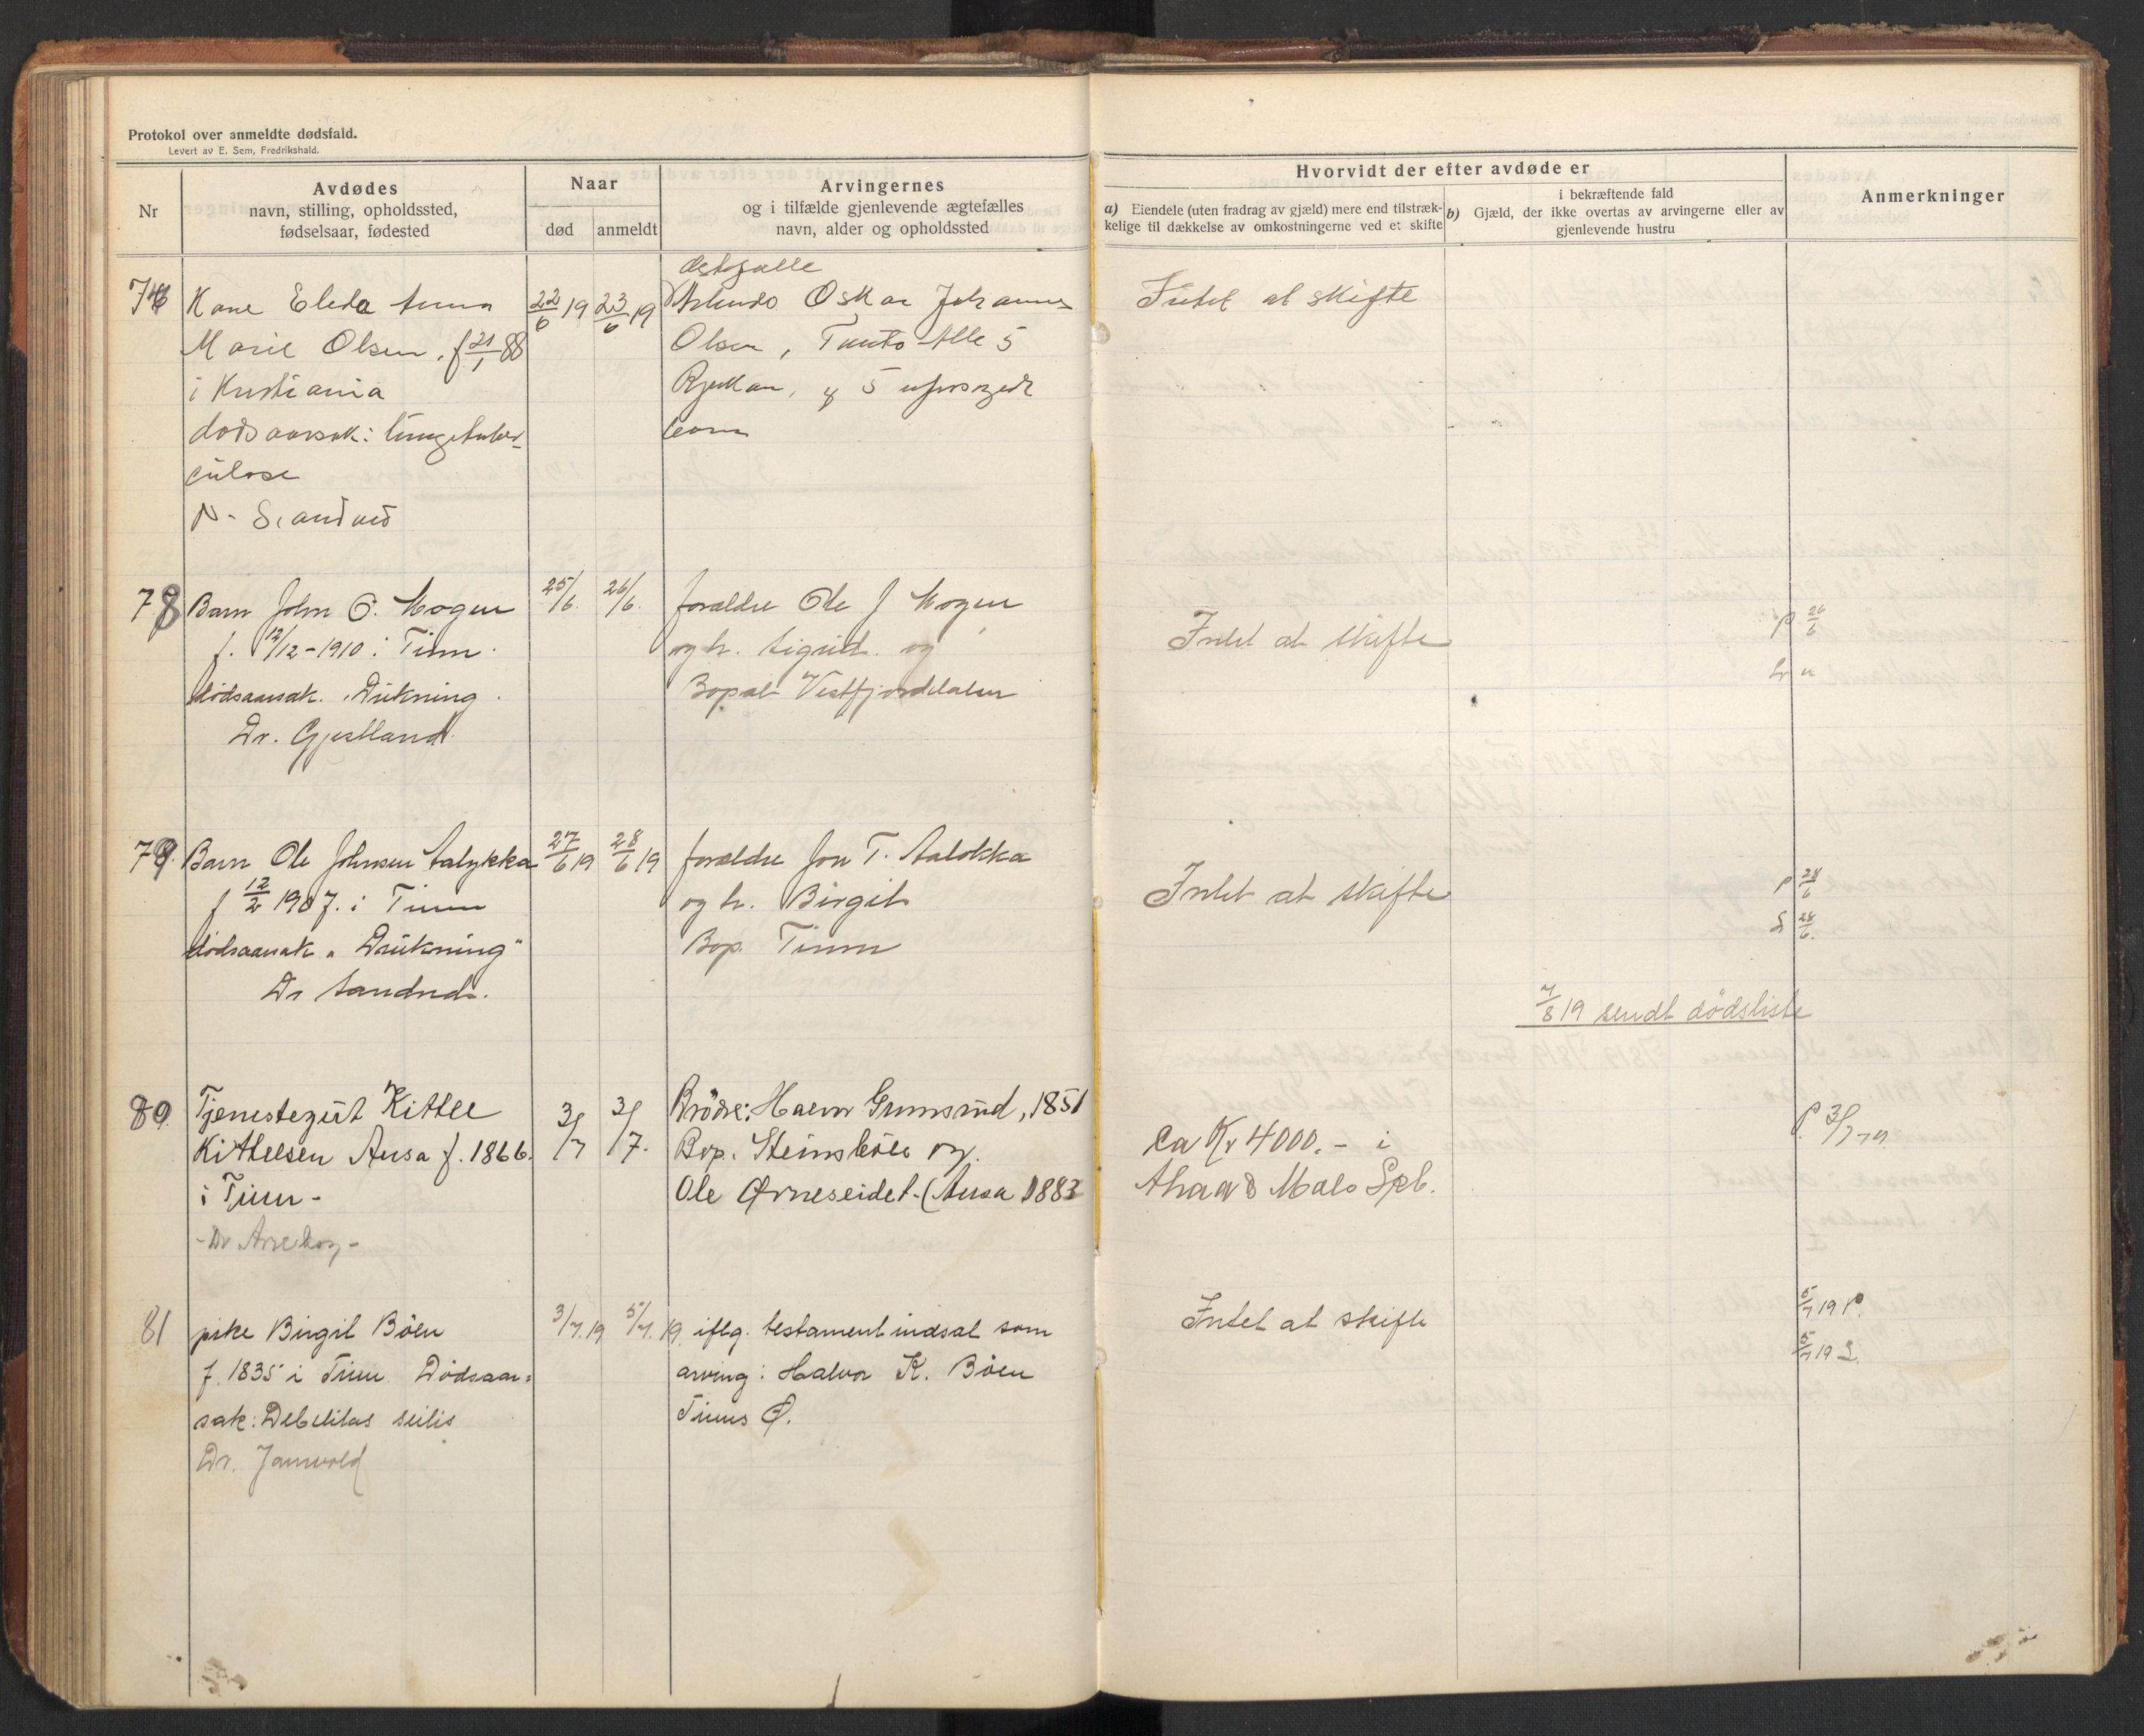 Protokol over anmeldte dødsfald.
Levert av E. Sem, Fredrikshald.
Nr
Avdødes
navn, stilling, opholdssted,
fødselsaar, fødested
Naar
død
anmeldt
Arvingernes
og i tilfælde gjenlevende ægtefælles
navn, alder og opholdssted
Hvorvidt der efter avdøde er
a) Eiendele (uten fradrag av gjæld) mere end tilstræk-
kelige til dækkelse av omkostningerne ved et skifte
i bekræftende fald
b) Gjæld, der ikke overtas av arvingerne eller av
gjenlevende hustru
Anmerkninger
Kone Eleda Anna
Marie Olsen, f 21/1 88
i Kristiania
dødsaarsak: lungetuber-
culose
22/6 19
23/6 19
Oskar Johannes
Olsen, 5
Rjukan, og 5 uforsørgede
barn
Intet at skifte
78
Barn John O. Mogen
f. 12/12-1910 i Tinn.
dødsaarsak. Drukning.
Dr. Gjestland
25/6.
26/6.
foreldre Ole J Mogen
og h. Sigrid. og
Bopæl Vestfjorddalen
Intet at skifte
P 26/6
79.
Barn Ole Johnsen Aalykka
f 12/2 1907. i Tinn
dødsaarsak "Drukning"
Dr Sandved.
27/6 19
28/6 19
foreldre Jon T. Aalokka
og h. Birgit
Bop. Tinn
Intet at skifte
P 28/6
S 28/6.
7/8 19 sendt dødsliste
80.
Tjenestegut Kittel
Kittelsen Ausa f. 1866.
i Tinn -
3/7
3/7.
Brödre: Halvor Grimsrud, 1851
Bop. Steinsböle og
Ole Ørneseidet (Ausa 1883
Ca Kr 4000.- i
Spb.
P. 3/7-19
81
pike Birgit Böen
f. 1835 i Tinn Dödsaar=
sak: Debilitas senilis
Dr.
3/7.19
5/7.19
iflg. testament indsat som
arving: Halvor K. Böen
Tinns Ø.
Intet at skifte
5/7 19 P.
5/7 19 S.